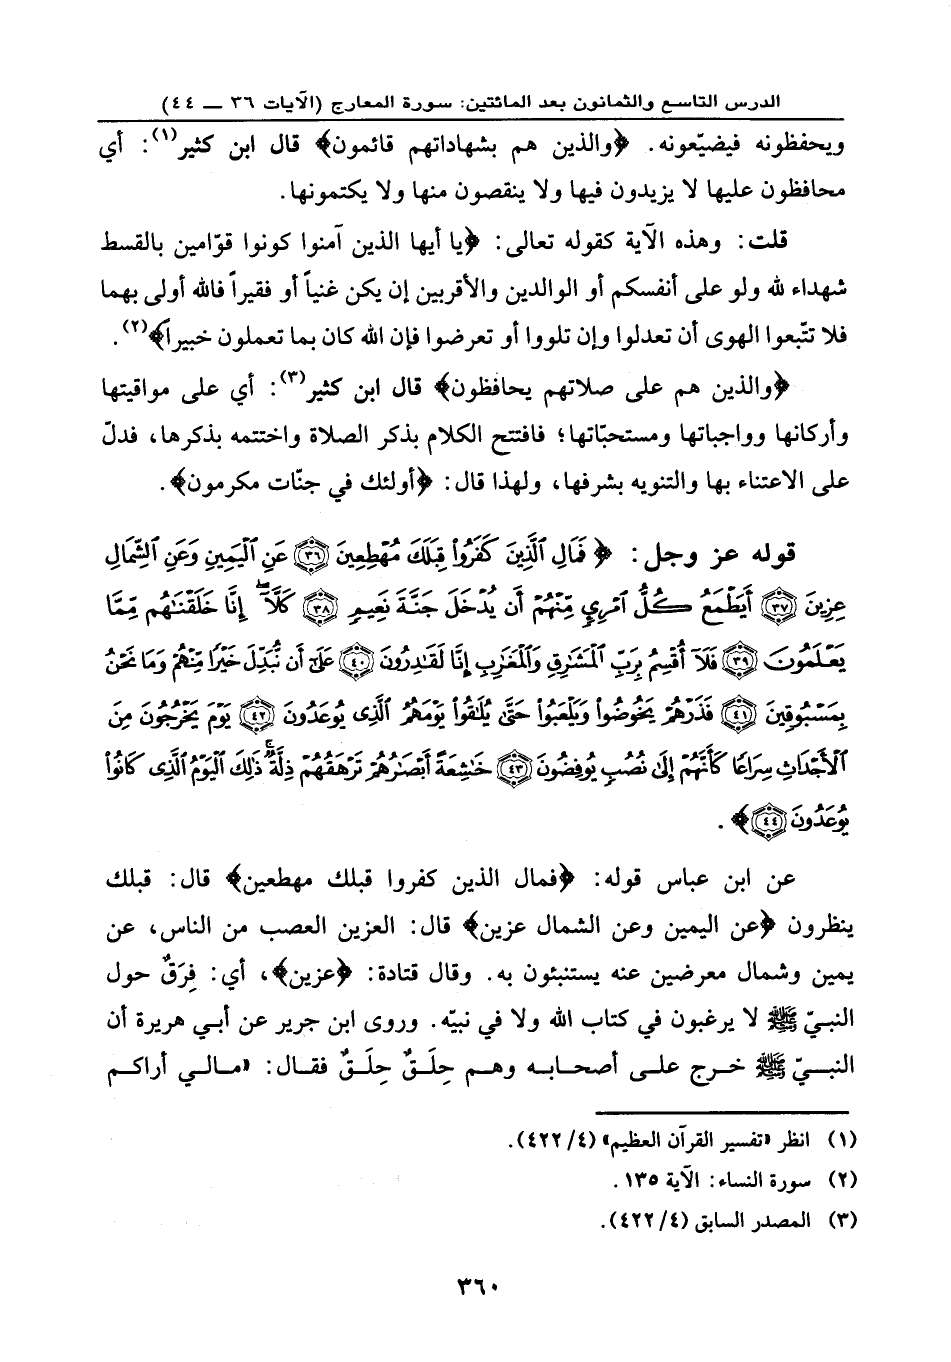 الدرس التاسع والثمانون بعد المائتين: سورة المعارج (الآيات ٣٦ ــ ٤٤)
ويحفظونه فيضيّعونه. ﴿والذين هم بشهاداتهم قائمون﴾ قال ابن كثير(١): أي
محافظون عليها لا يزيدون فيها ولا ينقصون منها ولا يكتمونها.
قلت: وهذه الآية كقوله تعالى: ﴿يا أيها الذين آمنوا كونوا قوّامين بالقسط
شهداء لله ولو على أنفسكم أو الوالدين والأقربين إن يكن غنياً أو فقيراً فالله أولى بهما
فلا تتّبعوا الهوى أن تعدلوا وإن تلووا أو تعرضوا فإن الله كان بما تعملون خبيراً﴾(٢).
﴿والذين هم على صلاتهم يحافظون﴾ قال ابن كثير(٣): أي على مواقيتها
وأركانها وواجباتها ومستحبّاتها؛ فافتتح الكلام بذكر الصلاة واختتمه بذكرها، فدلّ
على الاعتناء بها والتنويه بشرفها، ولهذا قال: ﴿أولئك في جنّات مكرمون﴾.
قوله عز وجل: ﴿ فَمَالِ الَّذِينَ كَفَرُوا۟ قِبَلَكَ مُهْطِعِينَ ٣٦ عَنِ الْيَمِينِ وَعَنِ الشِّمَالِ
عِزِينَ ٣٧ أَيَطْمَعُ كُلُّ امْرِئٍ مِّنْهُمْ أَن يُدْخَلَ جَنَّةَ نَعِيمٍ ٣٨ كَلَّا ۖ إِنَّا خَلَقْنَٰهُم مِّمَّا
يَعْلَمُونَ ٣٩ فَلَآ أُقْسِمُ بِرَبِّ الْمَشَٰرِقِ وَالْمَغَٰرِبِ إِنَّا لَقَٰدِرُونَ ٤٠ عَلَىٰٓ أَن نُّبَدِّلَ خَيْرًا مِّنْهُمْ وَمَا نَحْنُ
بِمَسْبُوقِينَ ٤١ فَذَرْهُمْ يَخُوضُوا۟ وَيَلْعَبُوا۟ حَتَّىٰ يُلَٰقُوا۟ يَوْمَهُمُ الَّذِى يُوعَدُونَ ٤٢ يَوْمَ يَخْرُجُونَ مِنَ
الْأَجْدَاثِ سِرَاعًا كَأَنَّهُمْ إِلَىٰ نُصُبٍ يُوفِضُونَ ٤٣ خَٰشِعَةً أَبْصَٰرُهُمْ تَرْهَقُهُمْ ذِلَّةٌ ۚ ذَٰلِكَ الْيَوْمُ الَّذِى كَانُوا۟
يُوعَدُونَ ٤٤﴾.
عن ابن عباس قوله: ﴿فمال الذين كفروا قبلك مهطعين﴾ قال: قبلك
ينظرون ﴿عن اليمين وعن الشمال عزين﴾ قال: العزين العصب من الناس، عن
يمين وشمال معرضين عنه يستنبئون به. وقال قتادة: ﴿عزين﴾، أي: فِرَقٌ حول
النبيّ ﷺ لا يرغبون في كتاب الله ولا في نبيّه. وروى ابن جرير عن أبي هريرة أن
النبـيّ ﷺ خـرج علـى أصحـابـه وهـم حِلَـقٌ حِلَـقٌ فقـال: «مـالـي أراكـم
(١) انظر «تفسير القرآن العظيم» (٤/ ٤٢٢).
(٢) سورة النساء: الآية ١٣٥.
(٣) المصدر السابق (٤/ ٤٢٢).
٣٦٠